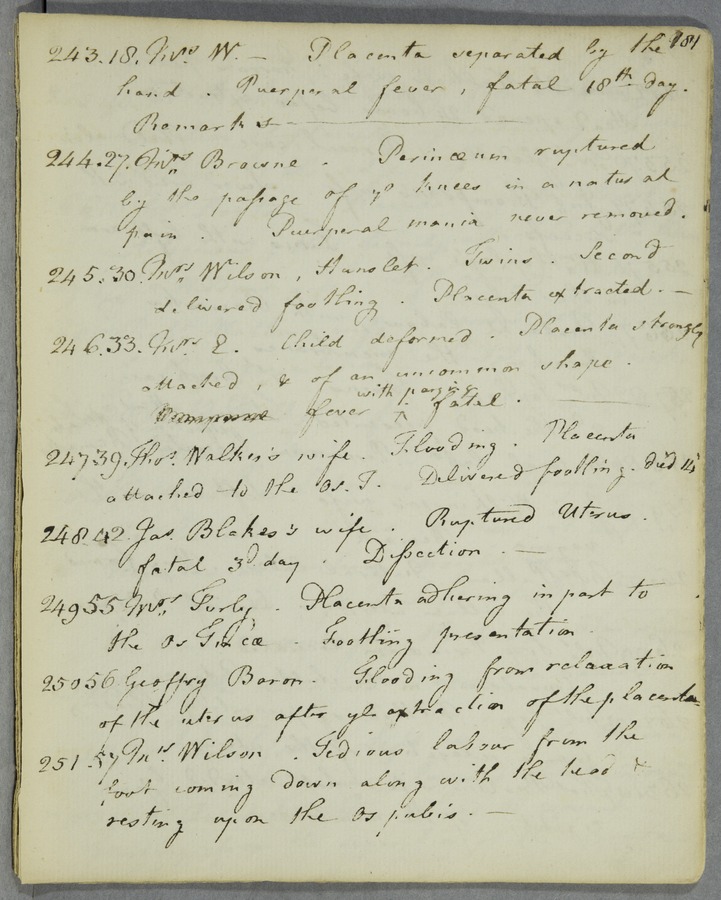 181
243.18. Mrs W. — Placenta separated by the
hand. Puerperal fever, fatal 18th day.
Remarks —
244.27. Mrs Browne. Perinæum ruptured
by the passage of ye knees in a natural
pain. Puerperal mania never removed.
245.30. Mrs Wilson, Hunslet. Twins. Second
delivered footling. Placenta extracted. —
246.33. Mrs E. Child deformed. Placenta strongly
attached, & of an uncommon shape.
with purging
fever ^ fatal. —
247.39. Thos. Walker's wife. Flooding. Placenta
attached to the Os. T. Delivered footling. died 14
248.42. Jas. Blakes's wife. Ruptured Uterus.
fatal 3d day. Dissection. —
249.55 Mrs Furly. Placenta adhering in part to
the Os Tincæ. Footling presentation.
250.56. Geoffry Baron. Flooding from relaxation
of the uterus after ye extraction of the placenta
251.57 Mrs Wilson. Tedious labour from the
foot coming down along with the head &
resting upon the Os pubis. —